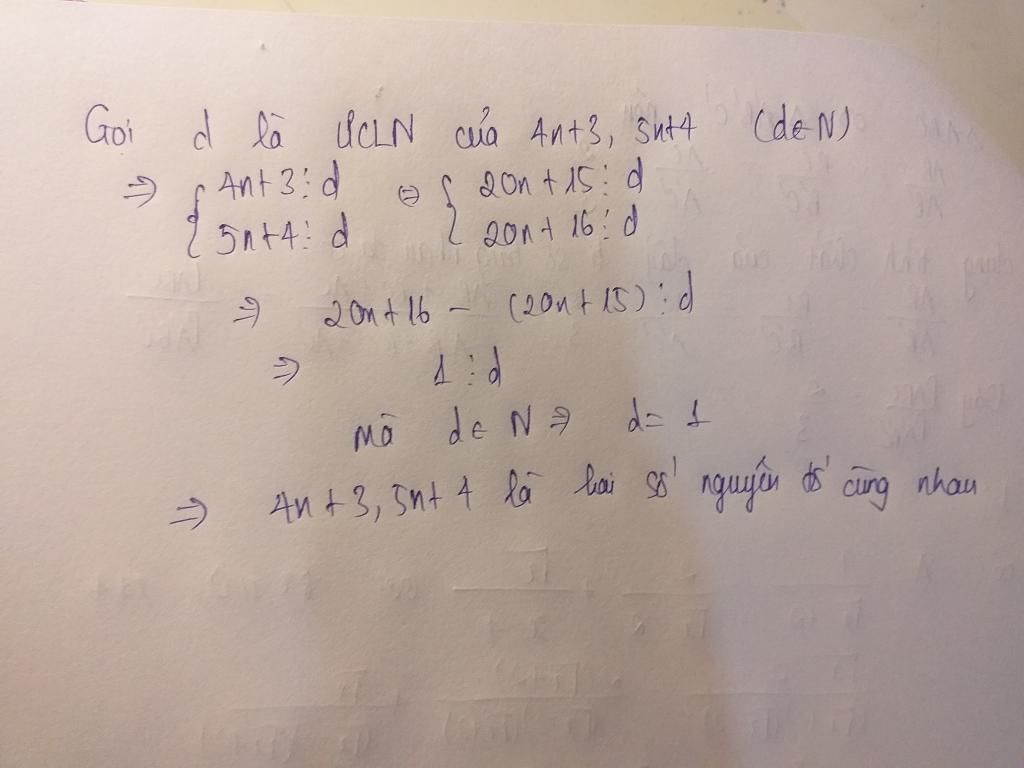 Gọi d là ƯCLN của 4n+3, 5n+4 (d∈N)
⇒ { 4n+3 ⋮ d ⇔ { 20n+15 ⋮ d
5n+4 ⋮ d 20n+16 ⋮ d
⇒ 20n+16 - (20n+15) ⋮ d
⇒ 1 ⋮ d
mà d∈N ⇒ d=1
⇒ 4n+3, 5n+4 là hai số nguyên tố cùng nhau